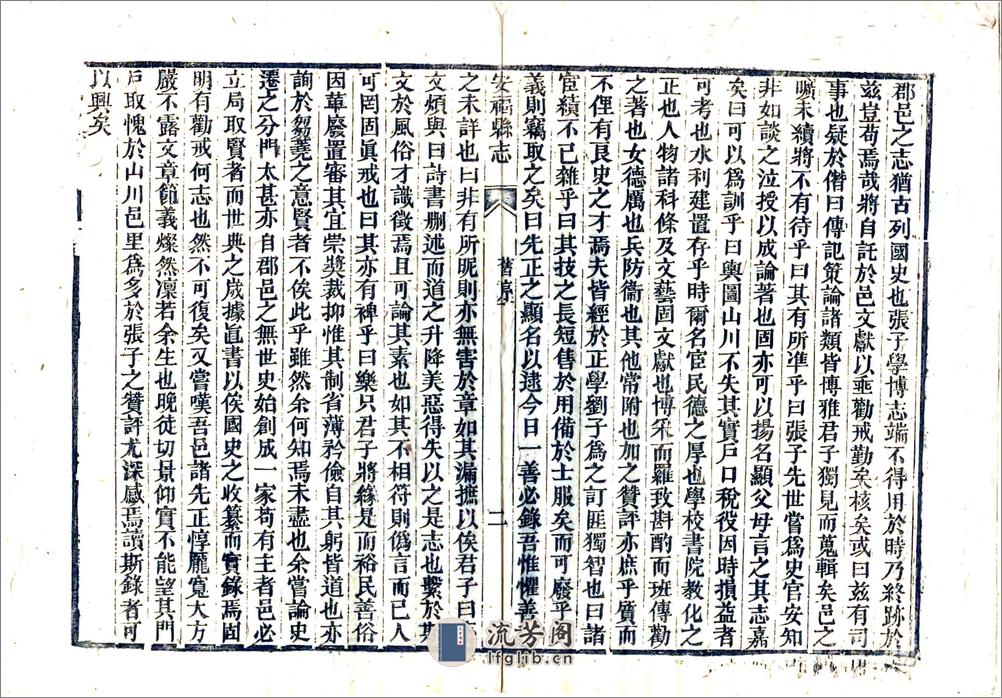 郡邑之志猶古列國史也張子學博志端不得用於時乃終跡於
茲豈苟焉哉將自託於邑文獻以乖勸戒勤矣核矣或曰茲有司
事也疑於僭曰傳記策論諸類皆博雅君子獨見而蒐輯矣邑之
曠未續將不有待乎曰其有所準乎曰張子先世嘗為史官安知
非如談之泣授以成論著也固亦可以揚名顯父母言之其志嘉
矣曰可以為訓乎曰輿圖山川不失其實戶口稅役因時損益者
可考也水利建置存乎時爾名宦民德之厚也學校書院教化之
正也人物諸科條及文藝固文獻也博采而羅致斟酌而班傳勸
之著也女德厲也兵防衞也其他常附也加之贊評亦庶乎質而
不俚有良史之才焉夫皆經於正學劉子為之訂匪獨智也曰諸
宦績不已雜乎曰其技之長短售於用備於士服矣而可廢乎
義則竊取之矣曰先正之顯名以逮今日一善必錄吾惟懼善
安福縣志
舊序
二
之未詳也曰非有所昵則亦無害於章如其漏摭以俟君子曰
文煩與曰詩書刪述而道之升降美惡得失以之是志也繫於斯
文於風俗才識徵焉且可論其素也如其不相符則僞言而已人
可罔固眞戒也曰其亦有裨乎曰樂只君子將緣是而裕民善俗
因革廢置審其宜崇獎裁抑惟其制省薄矜儉自其躬皆道也亦
詢於芻蕘之意賢者不俟此乎雖然余何知焉未盡也余嘗論史
遷之分門太甚亦自郡邑之無世史始創成一家苟有王者邑必
立局取賢者而世典之歲據直書以俟國史之收纂而實錄焉固
明有勸戒何志也然不可復矣又嘗嘆吾邑諸先正惇龐寬大方
嚴不露文章節義燦然凜若余生也晚徒切景仰實不能望其門
戶取愧於山川邑里為多於張子之贊評尤深感焉讀斯錄者可
以興矣
流芳阁
lfglib.cn